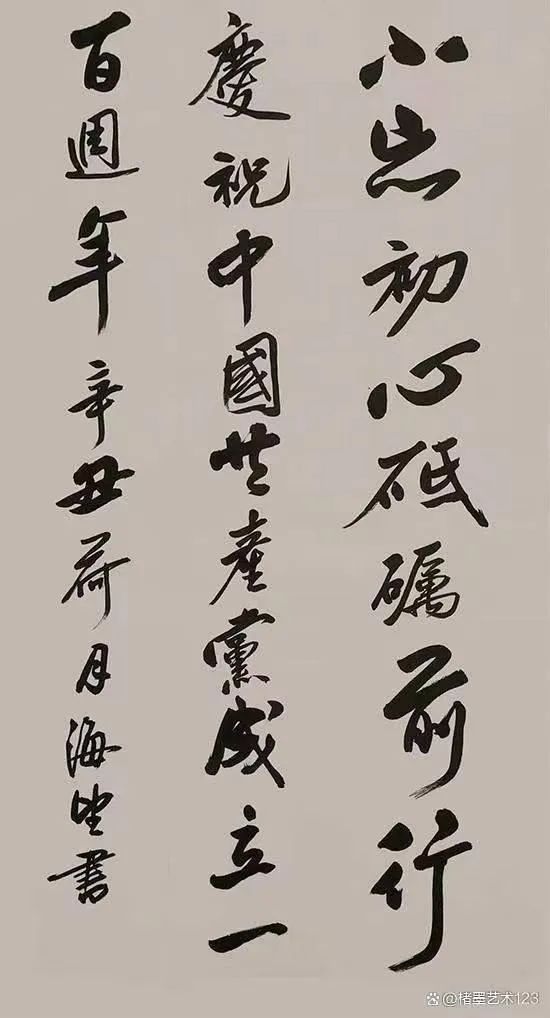 不忘初心砥礪前行
慶祝中國共產黨成立一
百週年 辛丑荷月海望書
@楮墨艺术123